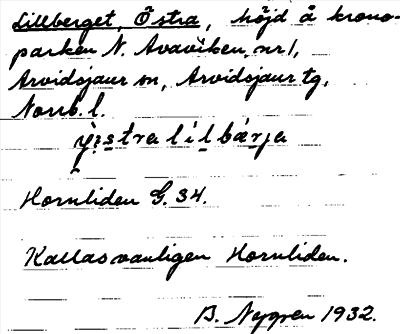 Lillberget, Östra, höjd å krono-
parken N. Avaviken, nr 1,
Arvidsjaur sn, Arvidsjaur tg,
Norrb. l.
lilbárja
Hornliden G. 34.
Kallas vanligen Hornliden.
B. Nygren 1932.